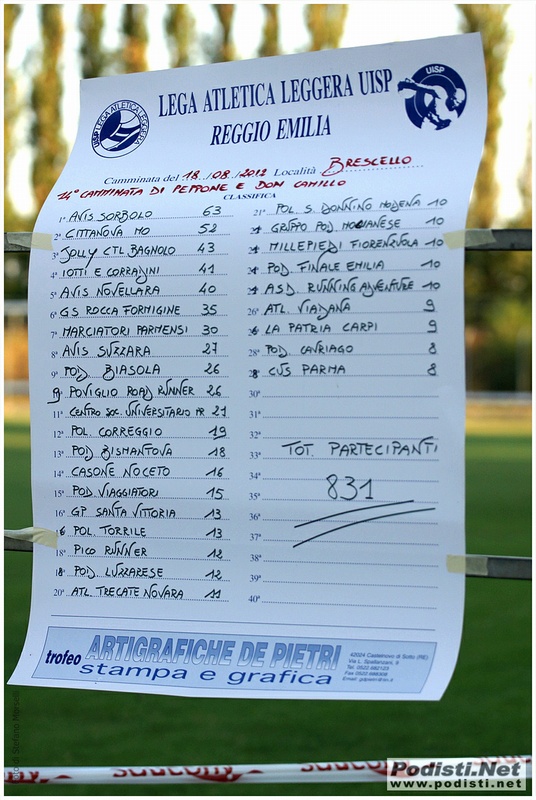 LEGA ATLETICA LEGGERA UISP
REGGIO EMILIA
UISP LEGA ATLETICA LEGGERA
UISP
Camminata del 18/08/2012 Località BRESCELLO
14° CAMMINATA DI PEPPONE E DON CAMILLO
CLASSIFICA
1° AVIS SORBOLO 63
2° CITTANOVA MO 52
3° JOLLY CTL BAGNOLO 43
4° IOTTI E CORRADINI 41
5° AVIS NOVELLARA 40
6° GS ROCCA FORMIGINE 35
7° MARCIATORI PARMENSI 30
8° AVIS SUZZARA 27
9° POD. BIASOLA 26
POVIGLIO ROAD RUNNER 26
11° CENTRO SOC. UNIVERSITARIO PR 21
12° POL. CORREGGIO 19
13° POD BISMANTOVA 18
14° CASONE NOCETO 16
15° POD. VIAGGIATORI 15
16° GP SANTA VITTORIA 13
6 POL. TORRILE 13
18° PICO RUNNER 12
18° POD. LUZZARESE 12
20° ATL. TRECATE NOVARA 11
21° POL. S. DONNINO MODENA 10
21 GRUPPO POD. MODANESE 10
21 MILLEPIEDI FIORENZUOLA 10
21 POD. FINALE EMILIA 10
21 A.S.D. RUNNING ADVENTURE 10
26° ATL. VIADANA 9
26° LA PATRIA CARPI 9
28° POD. CAVRIAGO 8
28 CUS PARMA 8
30°
31°
32°
33° TOT. PARTECIPANTI
34°
35° 831
36°
37°
38°
39°
40°
trofeo ARTIGRAFICHE DE PIETRI
stampa e grafica
42024 Castelnovo di Sotto (RE)
Via L. Spallanzani, 9
Tel. 0522.682123
Fax 0522.688308
saucony
Podisti.Net
www.podisti.net